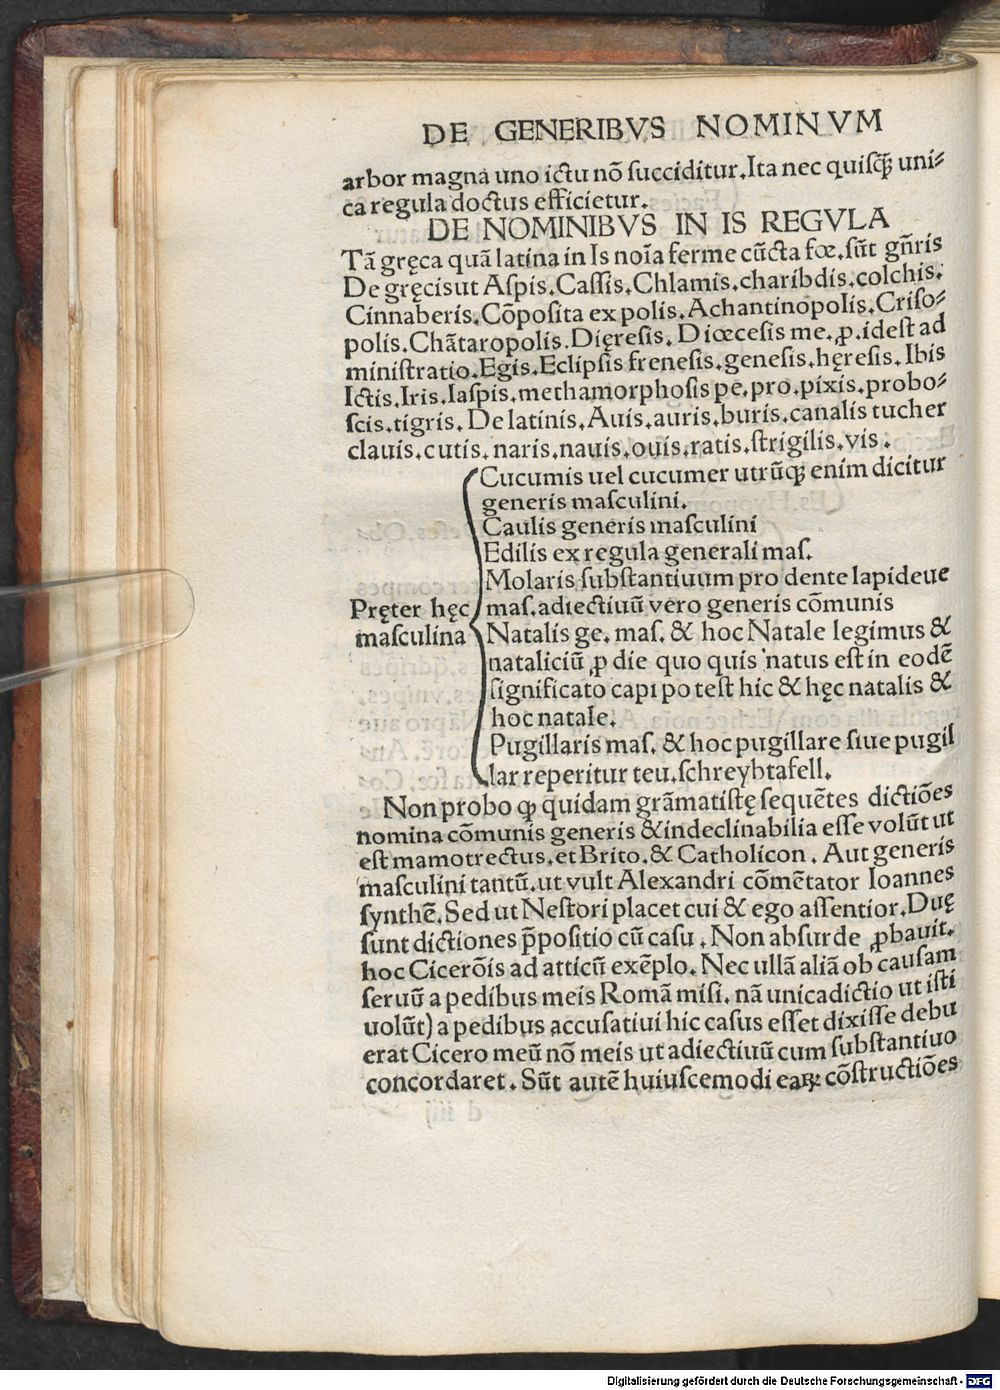 DE GENERIBVS NOMINVM
arbor magna uno ictu nõ ſucciditur. Ita nec quiſꝗ̃ uni⸗
ca regula doctus efficietur.
DE NOMINIBVS IN IS REGVLA
Tã gręca quã latina in Is noĩa ferme cũcta fœ. ſũt gñris
De gręcis ut Aſpis. Caſſis. Chlamis. charibdis. colchis.
Cinnaberis. Cõpoſita ex polis. Achantinopolis. Criſo⸗
polis. Chãtaropolis. Dięreſis. Diœceſis me. ꝓ. id eſt ad
miniſtratio. Egis. Eclipſis freneſis. geneſis. hęreſis. Ibis
Ictis. Iris. Iaſpis. methamorphoſis pe. pro. pixis. probo⸗
ſcis. tigris. De latinis. Auis. auris. buris. canalis tucher
clauis. cutis. naris. nauis. ouis. ratis. ſtrigilis. vis.
Cucumis uel cucumer utrũꝙ enim dicitur
generis maſculini.
Caulis generis maſculini
Edilis ex regula generali maſ.
Molaris ſubſtantiuum pro dente lapideue
Pręter hęc maſ. adiectiuũ vero generis cõmunis
maſculina Natalis ge. maſ. & hoc Natale legimus &
nataliciũ ꝓ die quo quis natus eſt in eodẽ
ſignificato capi poteſt hic & hęc natalis &
hoc natale.
Pugillaris maſ. & hoc pugillare ſiue pugil
lar reperitur teu. ſchreybtafell.
Non probo ꝙ quidam grãmatiſtę ſequẽtes dictiões
nomina cõmunis generis & indeclinabilia eſſe volũt ut
eſt mamotrectus. et Brito. & Catholicon. Aut generis
maſculini tantũ. ut vult Alexandri cõmẽtator Ioannes
ſynthẽ. Sed ut Neſtori placet cui & ego aſſentior. Duę
ſunt dictiones p̃poſitio cũ caſu. Non abſurde ꝓbauit.
hoc Cicerõis ad atticũ exẽplo. Nec ullã aliã ob cauſam
ſeruũ a pedibus meis Romã miſi. nã unica dictio ut iſti
uolũt) a pedibus accuſatiui hic caſus eſſet dixiſſe debu
erat Cicero meũ nõ meis ut adiectiuũ cum ſubſtantiuo
concordaret. Sũt autẽ huiuſcemodi eaꝝ cõſtructiões
Digitalisierung gefördert durch die Deutsche Forschungsgemeinschaft - DFG